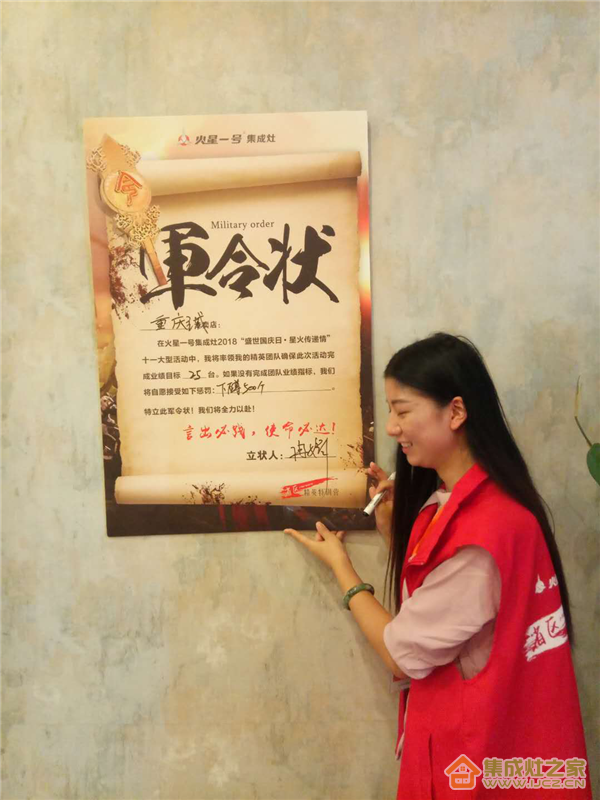 火星一号 集成灶
令
Military order
軍令状
重庆主城卖店：
在火星一号集成灶2018“盛世国庆日·星火传递情”
十一大型活动中，我将率领我的精英团队确保此次活动完
成业绩目标 25 台。如果没有完成团队业绩指标，我们
将自愿接受如下惩罚：下蹲500个。
特立此军令状！我们将全力以赴！
言出必践，使命必达！
立状人：
精英特训营
集成灶之家
WWW.JJCZ.CN